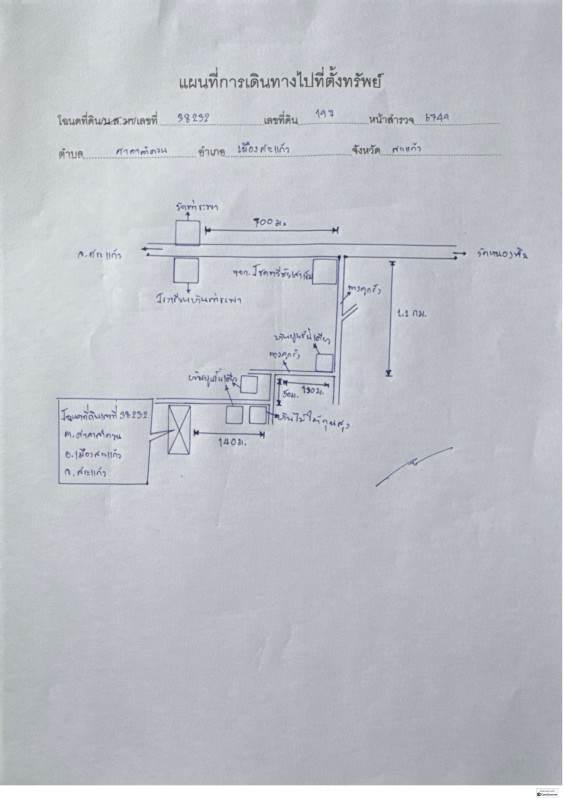 แผนที่การเดินทางไปที่ตั้งทรัพย์
โฉนดที่ดิน/น.ส.๓ก/เลขที่ 38292 เลขที่ดิน 197 หน้าสำรวจ ๖749
ตำบล ศาลาลำดวน อำเภอ เมืองสระแก้ว จังหวัด สระแก้ว
วัดท่าระพา
700 ม.
จ.สระแก้ว
วัดหนองพื้น
โรงเรียนบ้านท่าระพา
หจก.
ทางลูกรัง
1.1 กม.
บ้านปูนชั้นเดียว
ทางลูกรัง
บ้านปูนชั้นเดียว
50ม.
190ม.
บ้านไม้ใต้ถุนสูง
140ม.
โฉนดที่ดินเลขที่ 38292
ต.ศาลาลำดวน
อ.เมืองสระแก้ว
จ.สระแก้ว
CamScanner